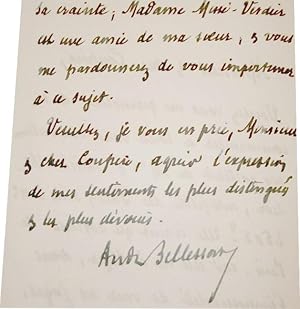 sa crainte, Madame Musé-Verdier
est une amie de ma sœur, & vous
me pardonnerez de vous importuner
à ce sujet.
Veuillez, je vous en prie, Monsieur
& cher Confrère, agréer l'expression
de mes sentiments les plus distingués
& les plus dévoués.
André Bellessort